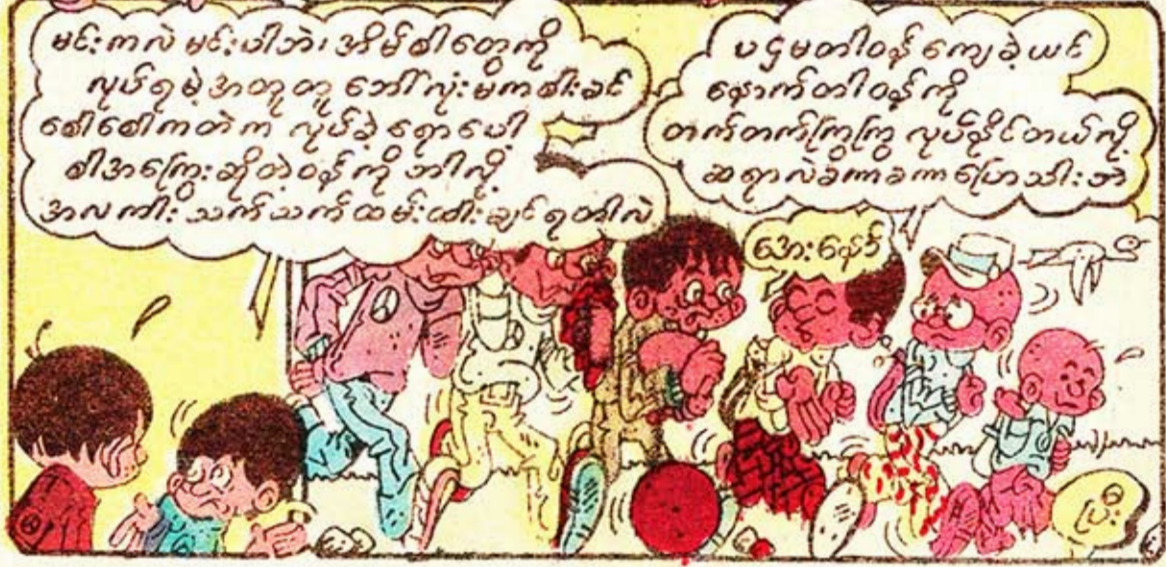 မင်းကလဲ မင်းပါဘဲ၊ အိမ်စါတွေကို
လုပ်ရမဲ့အတူတူ ဘော်လုံးမကစါးခင်
စောစောကတဲက လုပ်ခဲ့ရောပေါ့
စါအကြွေးဆိုတဲ့ဝန်ကို ဘါလို့
အလကါး သက်သက်ထမ်းထါးချင်ရတါလဲ
ပဌမတါဝန် ကျေခဲ့ယင်
နောက်တါဝန်ကို
တက်တက်ကြွကြွ လုပ်နိုင်တယ်လို့
ဆရာလဲခဏခဏပြောသါးဘဲ
အေးနော်
ပြီး